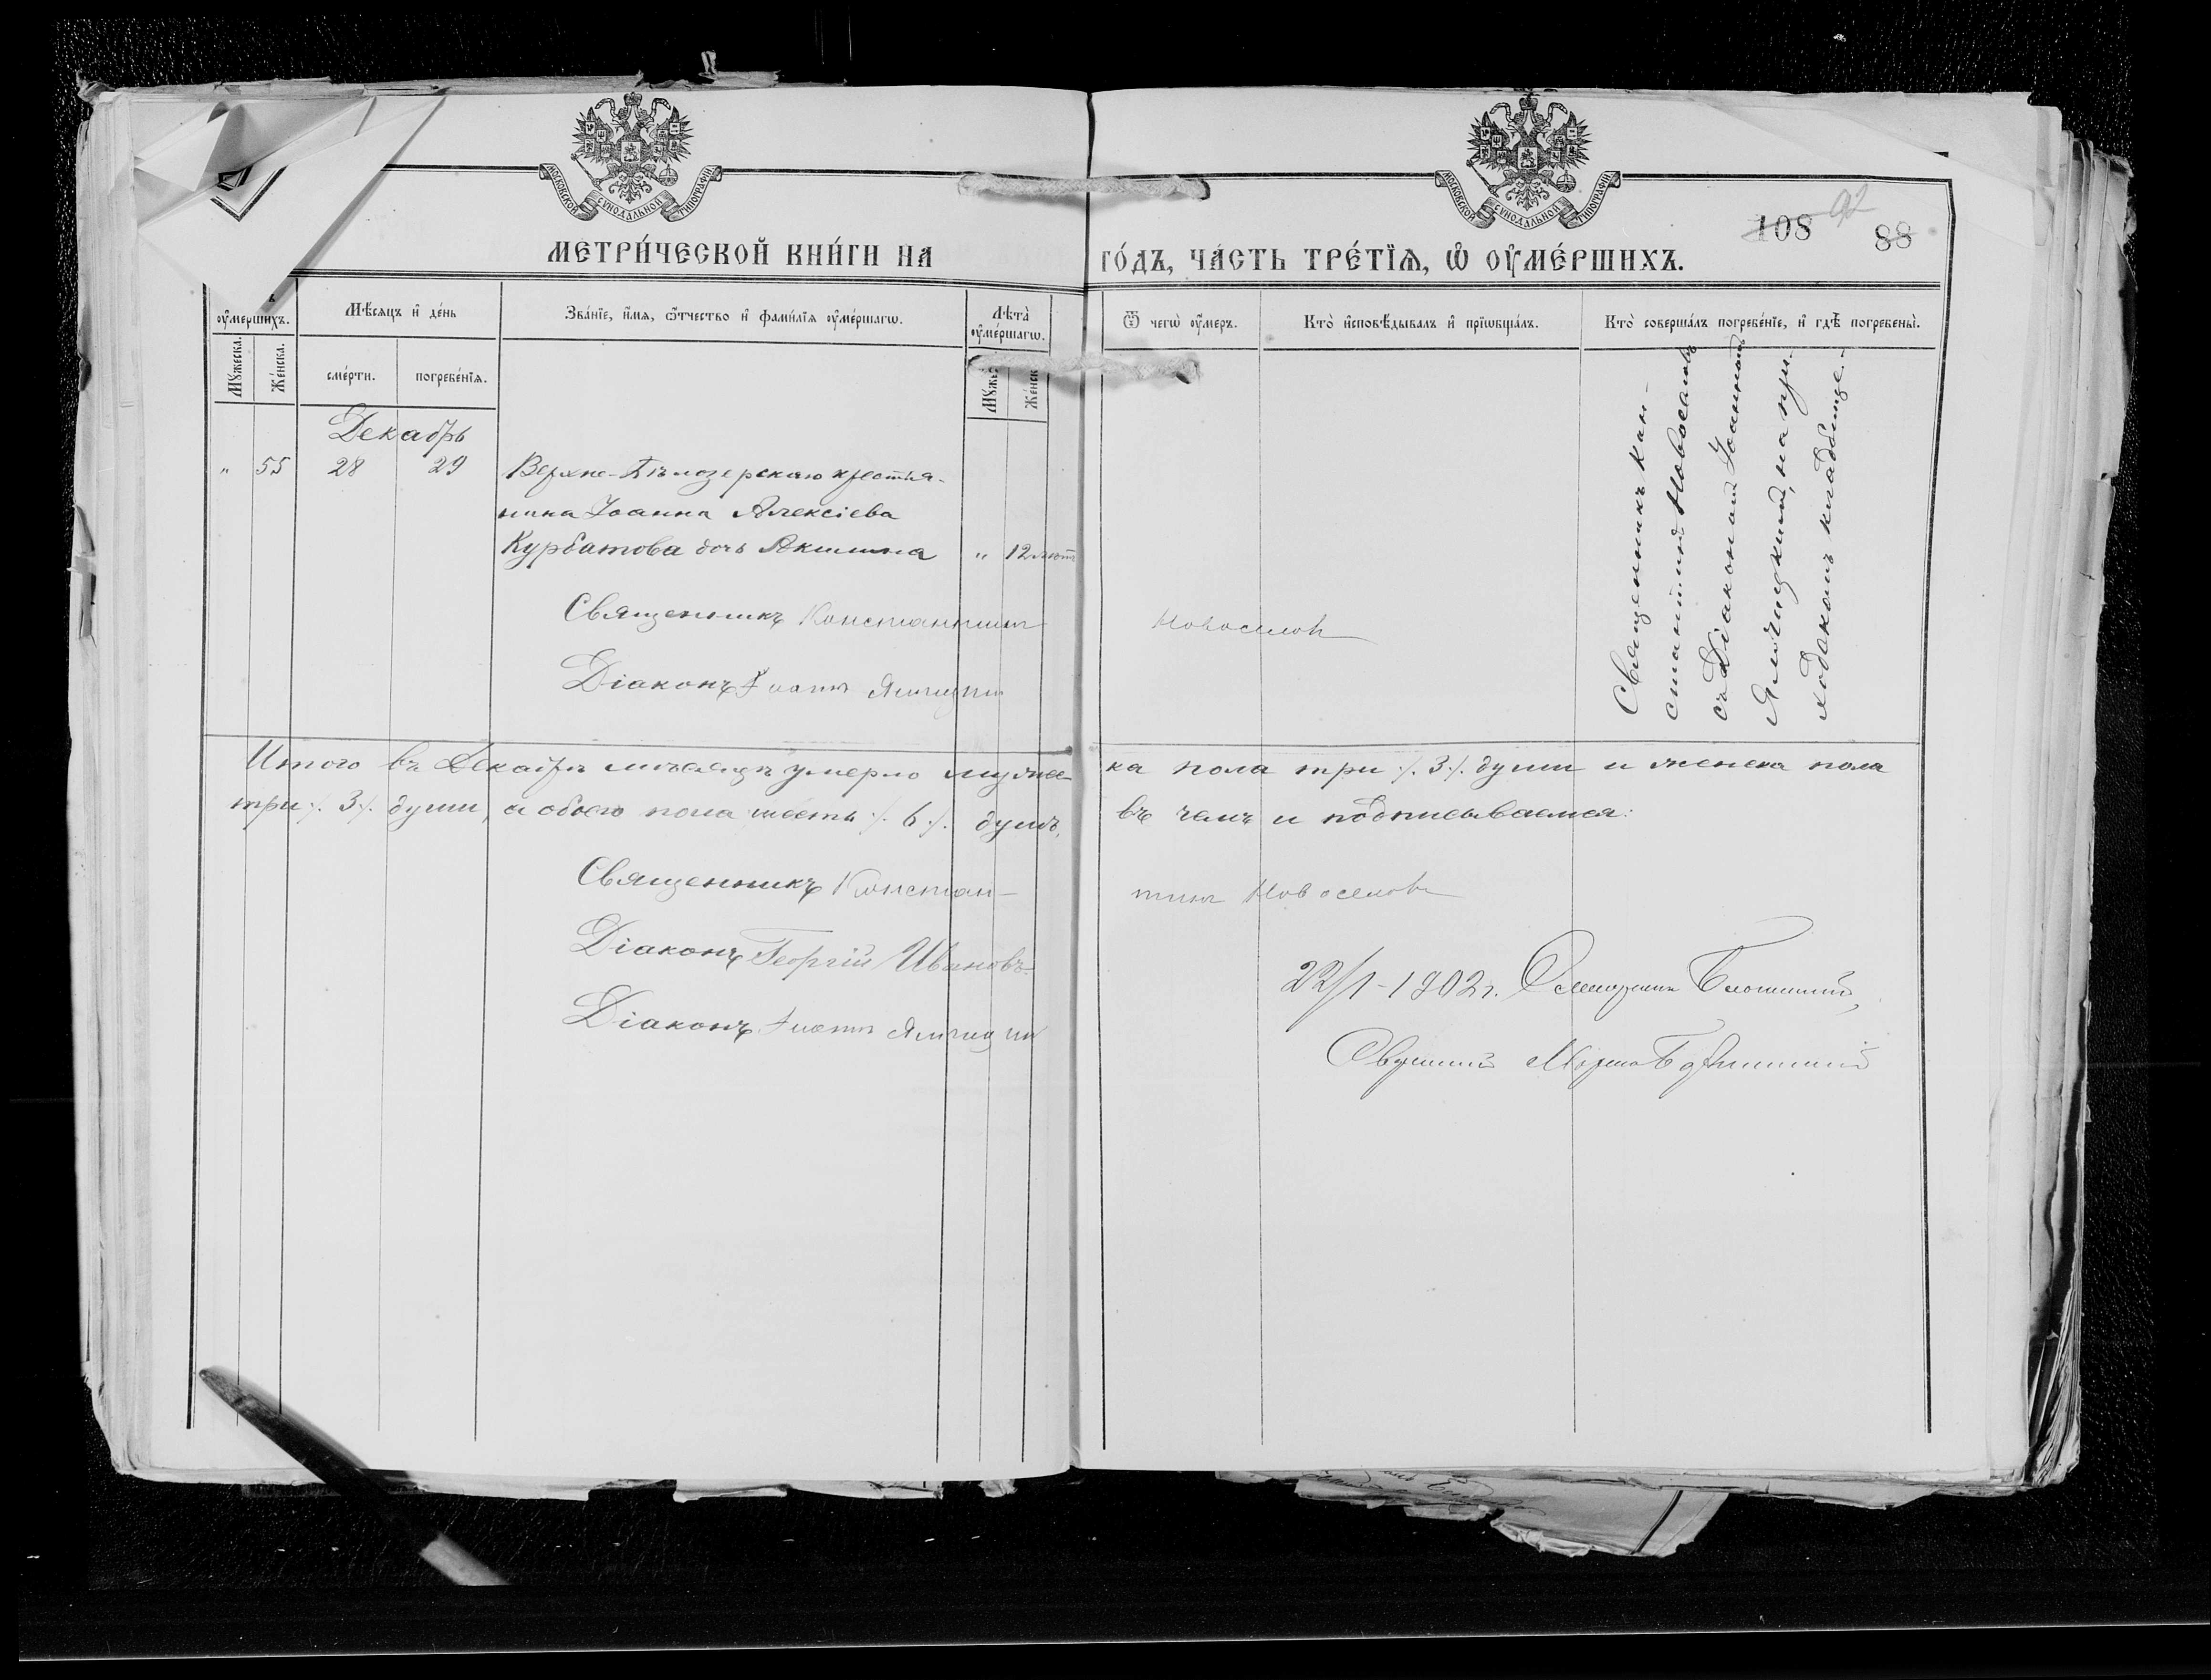 МОСКОВСКОЙ СУНОДАЛЬНОЙ ТИПОГРАФІИ
МОСКОВСКОЙ СУНОДАЛЬНОЙ ТИПОГРАФІИ
108 92 88
МЕТРИ́ЧЕСКОЙ КНИ́ГИ НА ГО́ДЪ, ЧА́СТЬ ТРЕ́ТЇѦ, Ѡ҆ ОУ҆МЕ́РШИХЪ.
оу҆мершихъ.
Мꙋжеска.
Же́нска.
Мѣ́сяцъ и҆ де́нь
сме́рти.
погребе́нїѧ.
Зва́нїе, и҆́мѧ, ѻ҆́тчество и҆ фамилїѧ оу҆ме́ршагѡ.
Лѣта̀ оу҆ме́ршагѡ.
Мꙋж
Же́нск
Ѿ чегѡ̀ оу҆́меръ.
Кто̀ и҆сповѣ́дывалъ и҆ прїѡбща́лъ.
Кто̀ соверша́лъ погребе́нїе, и҆ гдѣ̀ погребены̀.
Декабрь
" 55 28 29 Верхне-Бѣлозерскаго крестья-
нина Іоанна Алексіева
Курбатова дочь Акилина " 12 лѣтъ
Священникъ Кон-
стантинъ Новоселовъ
съ Діакономъ Іоанномъ
на при-
ходскомъ кладбище.
Священникъ Константинъ Новоселовъ
Діаконъ Іоаннъ
Итого въ Декабрѣ мѣсяцѣ умерло мужес- ка пола три ·/. 3 ·/. души и женска пола
три ·/. 3 ·/. души, а обоего пола шесть ·/. 6 ·/. душъ, въ чемъ и подписываемся:
Священникъ Констан- тинъ Новоселовъ
Діаконъ Георгій Ивановъ
Діаконъ Іоаннъ
22/1-1902 г.